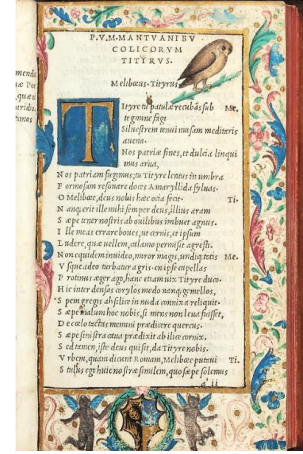 P.V.M. MANTVANI BV
COLICORVM
TITYRVS.
Meliboeus. Tityrus.
Tityre tu patulæ recubãs sub Me.
tegmine fagi
Siluestrem tenui musam meditaris
auena.
Nos patriæ fines, et dulcia linqui
mus arua,
Nos patriam fugimus, tu Tityre lentus in umbra
Formosam resonare doces Amaryllida syluas.
O Meliboee, deus nobis hæc ocia fecit. Ti.
Nanq; erit ille mihi semper deus, illius aram
Sæpe tener nostris ab ouilibus imbuet agnus.
Ille meas errare boues, ut cernis, et ipsum
Ludere, quæ uellem, calamo permisit agresti.
Non equidem inuideo, miror magis, undiq; totis Me.
Vsque adeo turbatur agris. en ipse capellas
Protinus æger ago, hanc etiam uix Tityre duco.
Hic inter densas corylos modo nanq; gemellos,
Spem gregis ah silice in nuda connixa reliquit.
Sæpe malum hoc nobis, si mens non læua fuisset,
De coelo tactas memini prædicere quercus.
Sæpe sinistra caua prædixit ab ilice cornix.
Sed tamen, iste deus qui sit, da Tityre nobis.
Vrbem, quam dicunt Romam, Meliboee putaui Ti.
Stultus ego huic nostræ similem, quo sæpe solemus
a ii